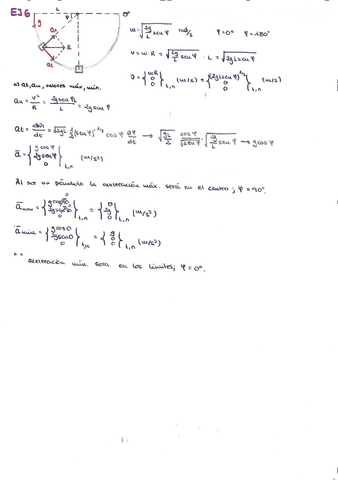 EJ6
g
L
φ
0°
an
a
at
w = √(2g/L senφ) rad/s φ=0° φ=180°
v = w·R = √(2g/L senφ) · L = √(2gL senφ)
v̄ = {wR 0 0} t,n (m/s) = {(2gL senφ)^1/2 0 0} t,n (m/s)
a) at, an, valores máx, mín.
an = v²/R = 2gL senφ/L = 2g senφ
at = d|v̄|/dt = √2gL · 1/2 (senφ)^-1/2 cosφ dφ/dt → √(gL/2) cosφ/√senφ · √(2g/L senφ) → g cosφ
ā = {g cosφ 2g senφ 0} t,n (m/s²)
Al ser un péndulo la aceleración máx. será en el centro; φ=90°.
ā max = {g cos90 2g sen90 0} t,n = {0 2g 0} t,n (m/s²)
ā min = {g cos0 2g sen0 0} t,n = {g 0 0} t,n (m/s²)
aceleración mín. será en los límites; φ=0°.